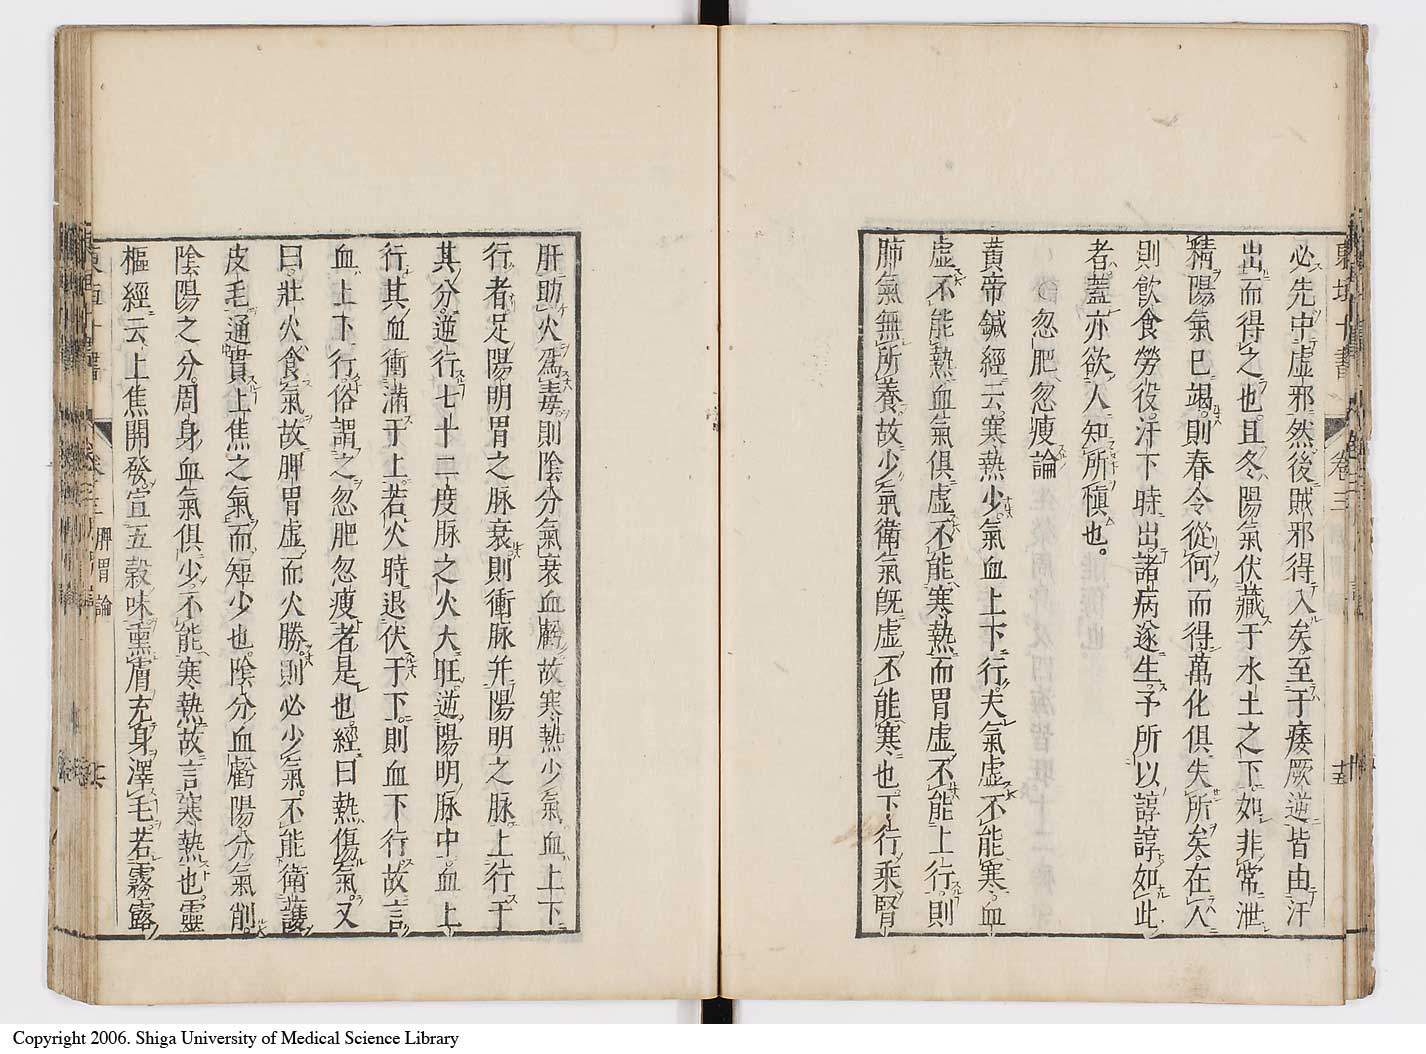 必先中虛邪然後賊邪得入矣至于痿厥逆皆由汗
出而得之也且冬陽氣伏藏于水土之下如非常泄
精陽氣已竭則春令從何而得萬化俱失所矣在人
則飲食勞役汗下時出諸病遂生予所以諄諄如此
者蓋亦欲人知所愼也。
忽肥忽瘦論
黃帝鍼經云寒熱少氣血上下行夫氣虛不能寒血
虛不能熱血氣俱虛不能寒熱而胃虛不能上行則
肺氣無所養故少氣衛氣旣虛不能寒也下行乘腎
肝助火爲毒則陰分氣衰血虧故寒熱少氣血上下
行者足陽明胃之脉衰則衝脉并陽明之脉上行于
其分逆行七十二度脉之火大旺逆陽明脉中血上
行其血衝滿于上若火時退伏于下則血下行故言
血上下行俗謂之忽肥忽瘦者是也經曰熱傷氣又
曰壯火食氣故脾胃虛而火勝則必少氣不能衛護
皮毛通貫上焦之氣而短少也陰分血虧陽分氣削
陰陽之分周身血氣俱少不能寒熱故言寒熱也靈
樞經云上焦開發宣五穀味熏膚充身澤毛若霧露
東垣十書
卷三
十五
卷三
脾胃論
Copyright 2006. Shiga University of Medical Science Library